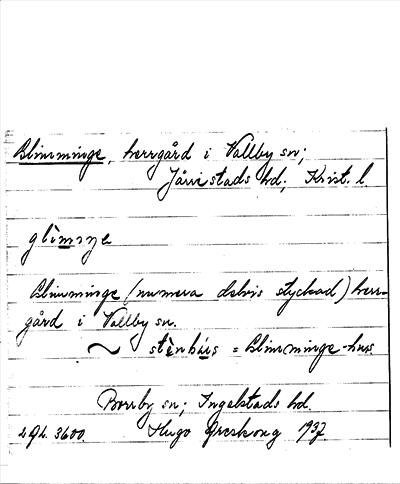 Glimminge, herrgård i Vallby sn;
Järrestads hd; Krist. l.
glìmiŋe
Glimminge (numera delvis styckad) herr-
gård i Vallby sn.
~ stènhús = Glimminge-hus.
Borrby sn; Ingelstads hd.
3600. Hugo Areskoug 1937